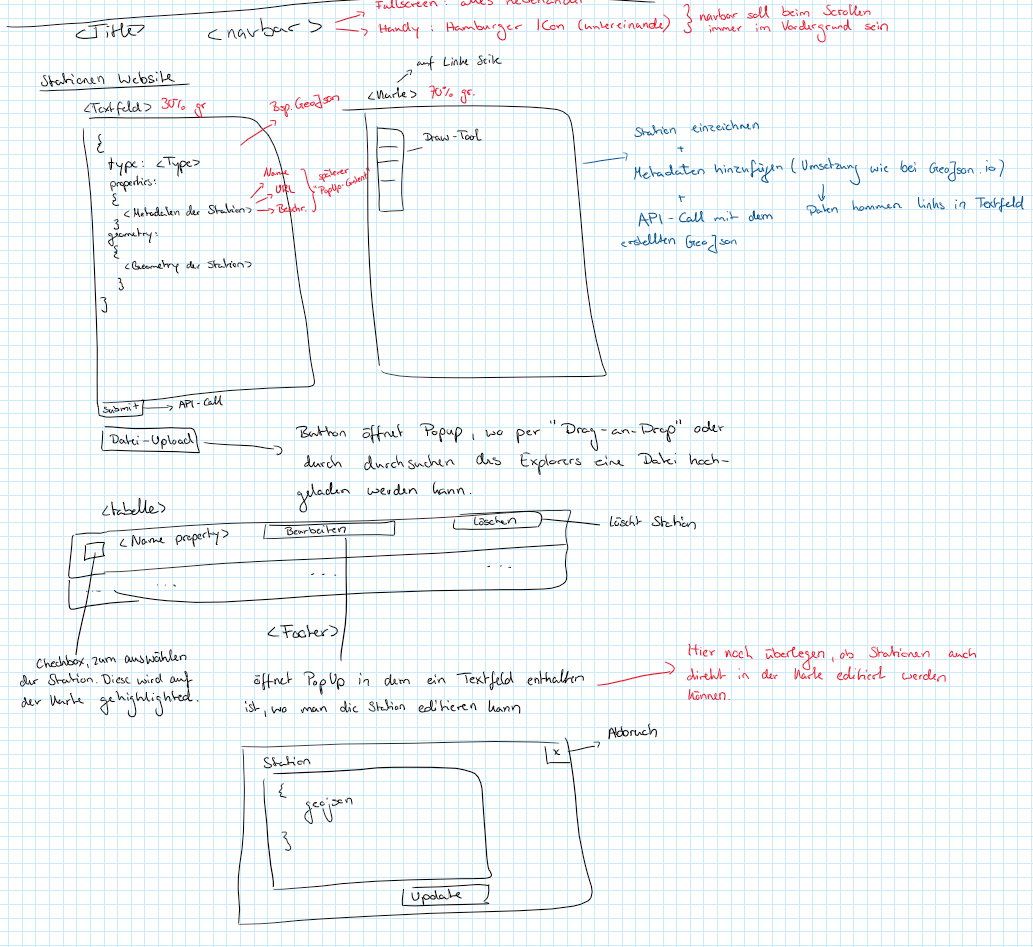 Fullscreen: alles nebeneinander
<Title> <navbar>
Handy: Hamburger ICon (untereinande)
navbar soll beim Scrollen
immer im Vordergrund sein
Stationen Website
auf Linke Seite
<Textfeld> 30% gr.
Bsp. GeoJson
<Karte> 70% gr.
{
type: <Type>
properties:
{
<Metadaten der Station>
}
geometry:
{
<Geometry der Station>
}
}
Name
URL
Beschr.
späterer
"PopUp-Content"
Draw-Tool
Station einzeichnen
+
Metadaten hinzufügen (Umsetzung wie bei GeoJson.io)
+
Daten kommen links in Textfeld
API-Call mit dem
erstellten GeoJson
Submit
API-Call
Datei-Upload
Button öffnet Popup, wo per "Drag-an-Drop" oder
durch durchsuchen des Explorers eine Datei hoch-
geladen werden kann.
<tabelle>
<Name property>
Bearbeiten
Löschen
Löscht Station
...
...
...
...
<Footer>
Checkbox, zum auswählen
der Station. Diese wird auf
der Karte gehighlighted.
öffnet PopUp in dem ein Textfeld enthalten
ist, wo man die Station editieren kann
Hier noch überlegen, ob Stationen auch
direkt in der Karte editiert werden
können.
Abbruch
x
Station
{
geojson
}
Update